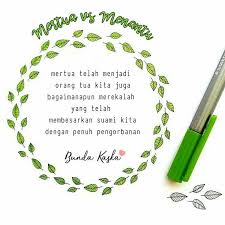 Mertua vs Menantu
mertua telah menjadi
orang tua kita juga
bagaimanapun merekalah
yang telah
membesarkan suami kita
dengan penuh pengorbanan
Bunda Kaska